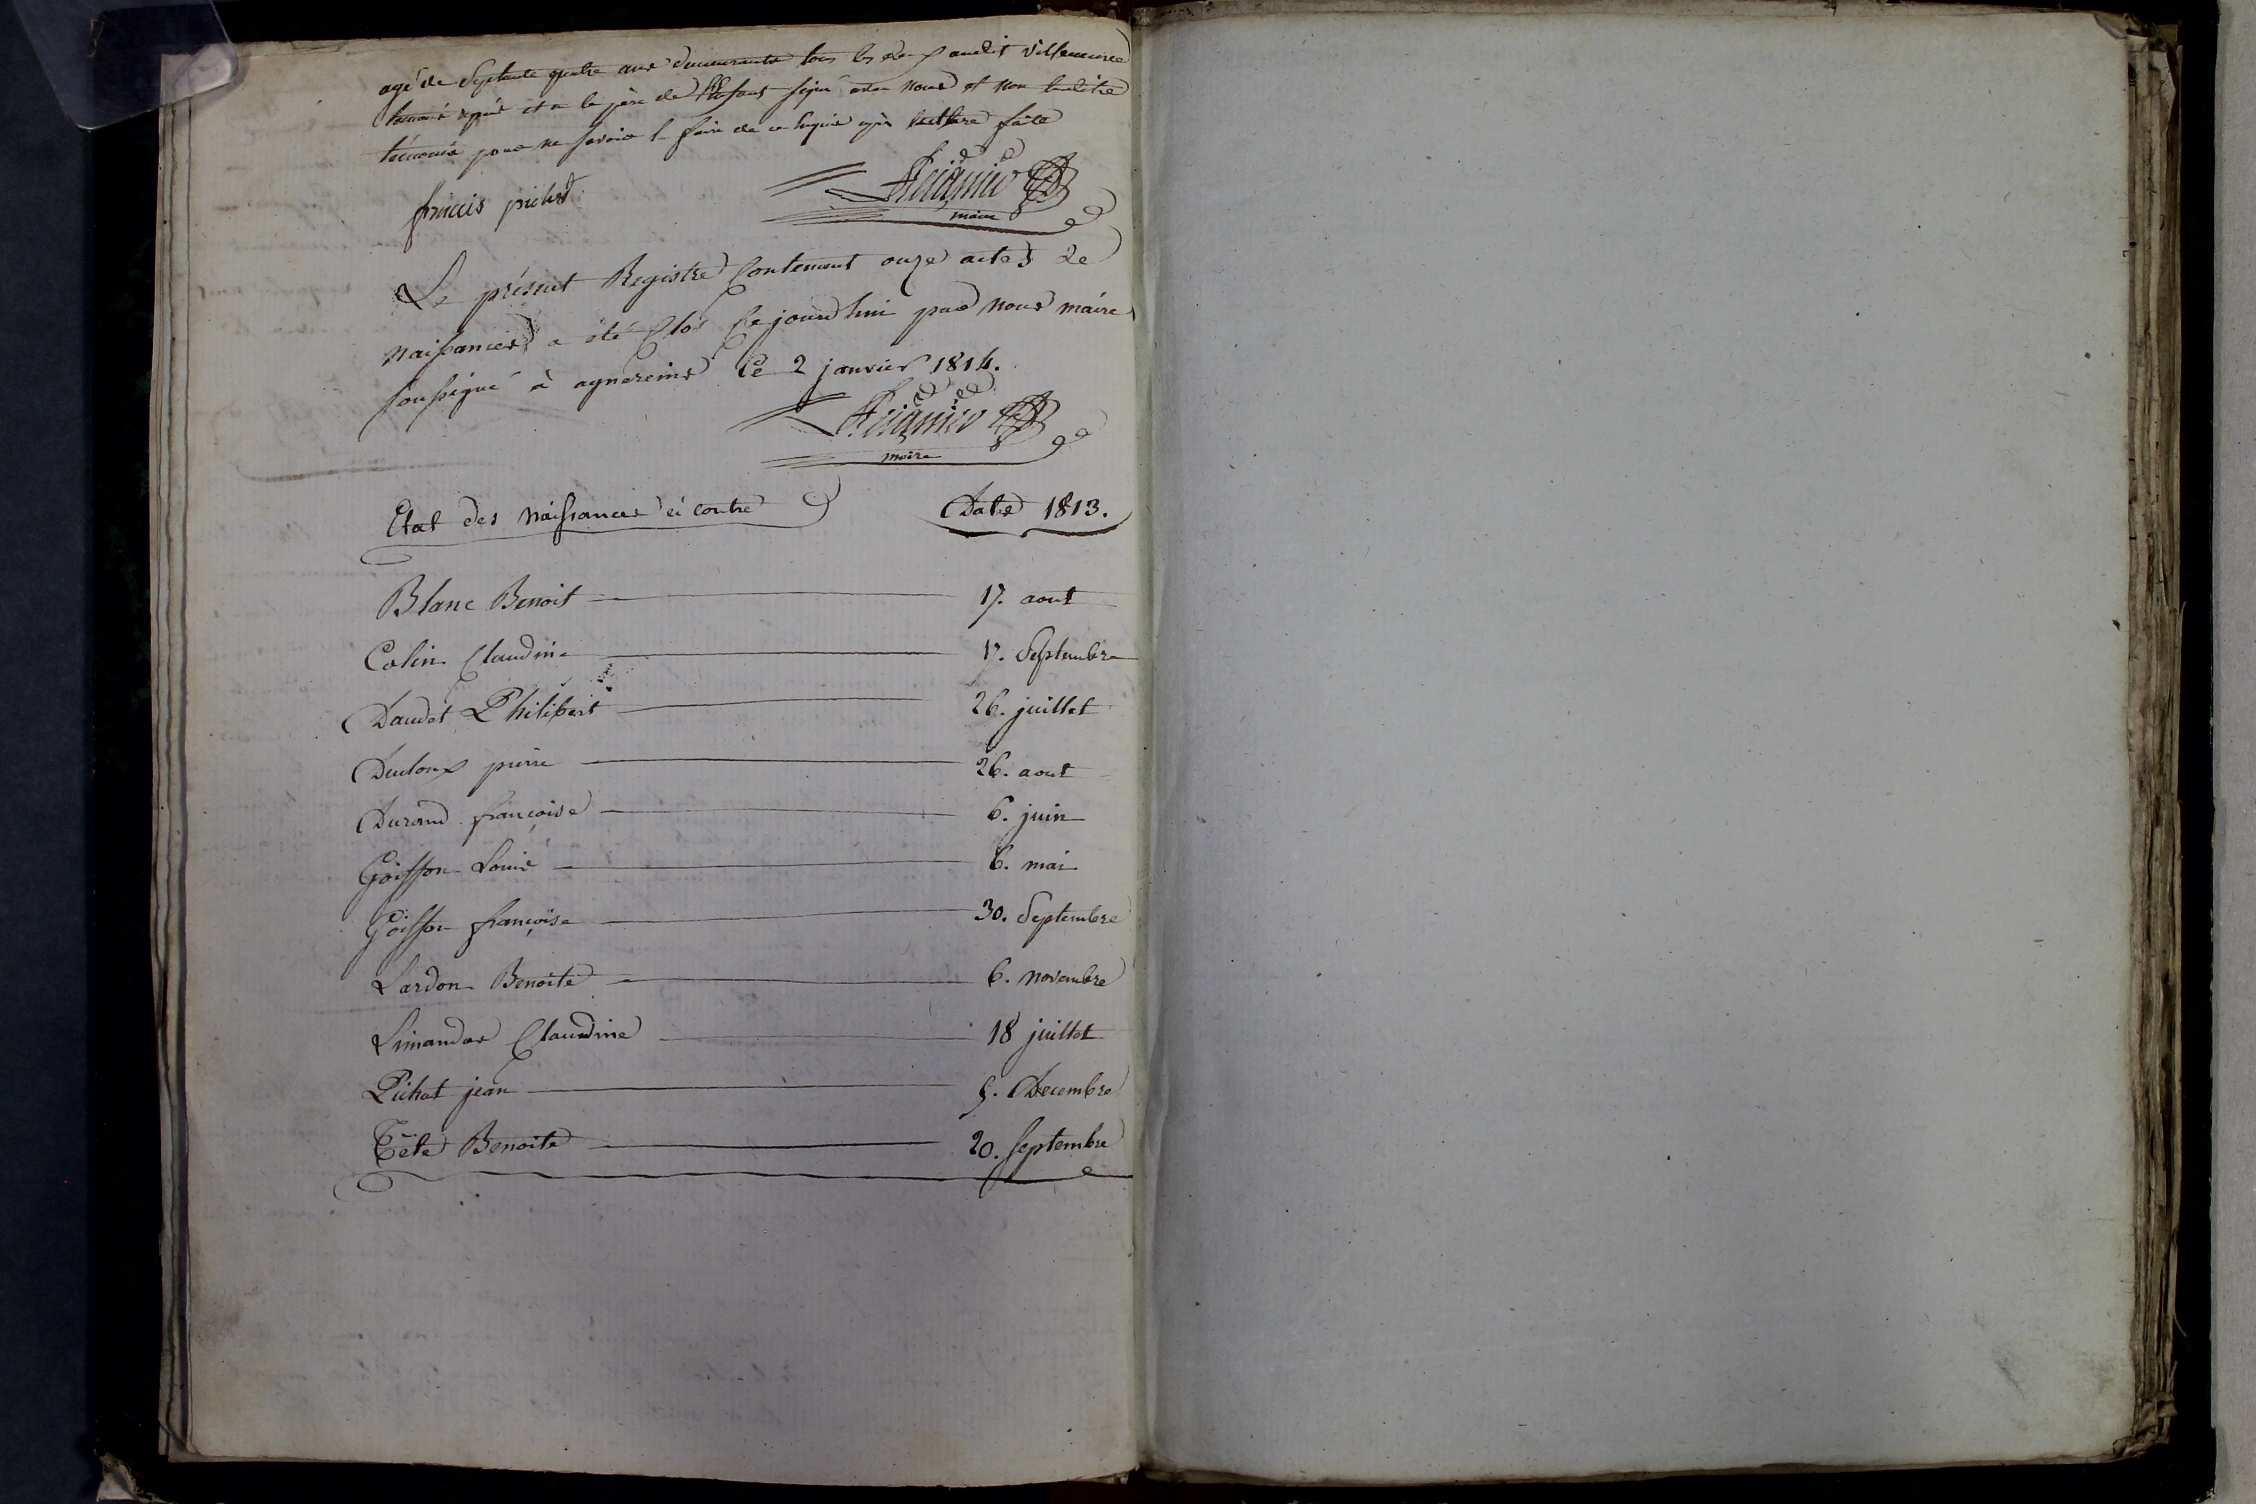 agé de Septante quatre ans demeurants tous les deux audit villeneuve
et a le père de l'Enfant signé avec nous et non ledit
témoin pour ne savoir le faire de ce requis après lecture faite
françois pichat
maire
Le présent Registre Contenant onze actes de
naissances a été Clos Cejourd'hui par nous maire
soussigné à agnereins Ce 2 janvier 1814.
maire
Etat des naissances ci contre Date 1813.
Blanc Benoit 17. aout
Colin Claudine 17. Septembre
Daudet Philibert 26. juillet
pierre 26. aout
Durand françoise 6. juin
Goiffon Louis 6. mai
Goiffon françoise 30. Septembre
Lardon Benoite 6. novembre
Limandas Claudine 18 juillet
Pichat jean 5. Decembre
Tête Benoite 20. septembre